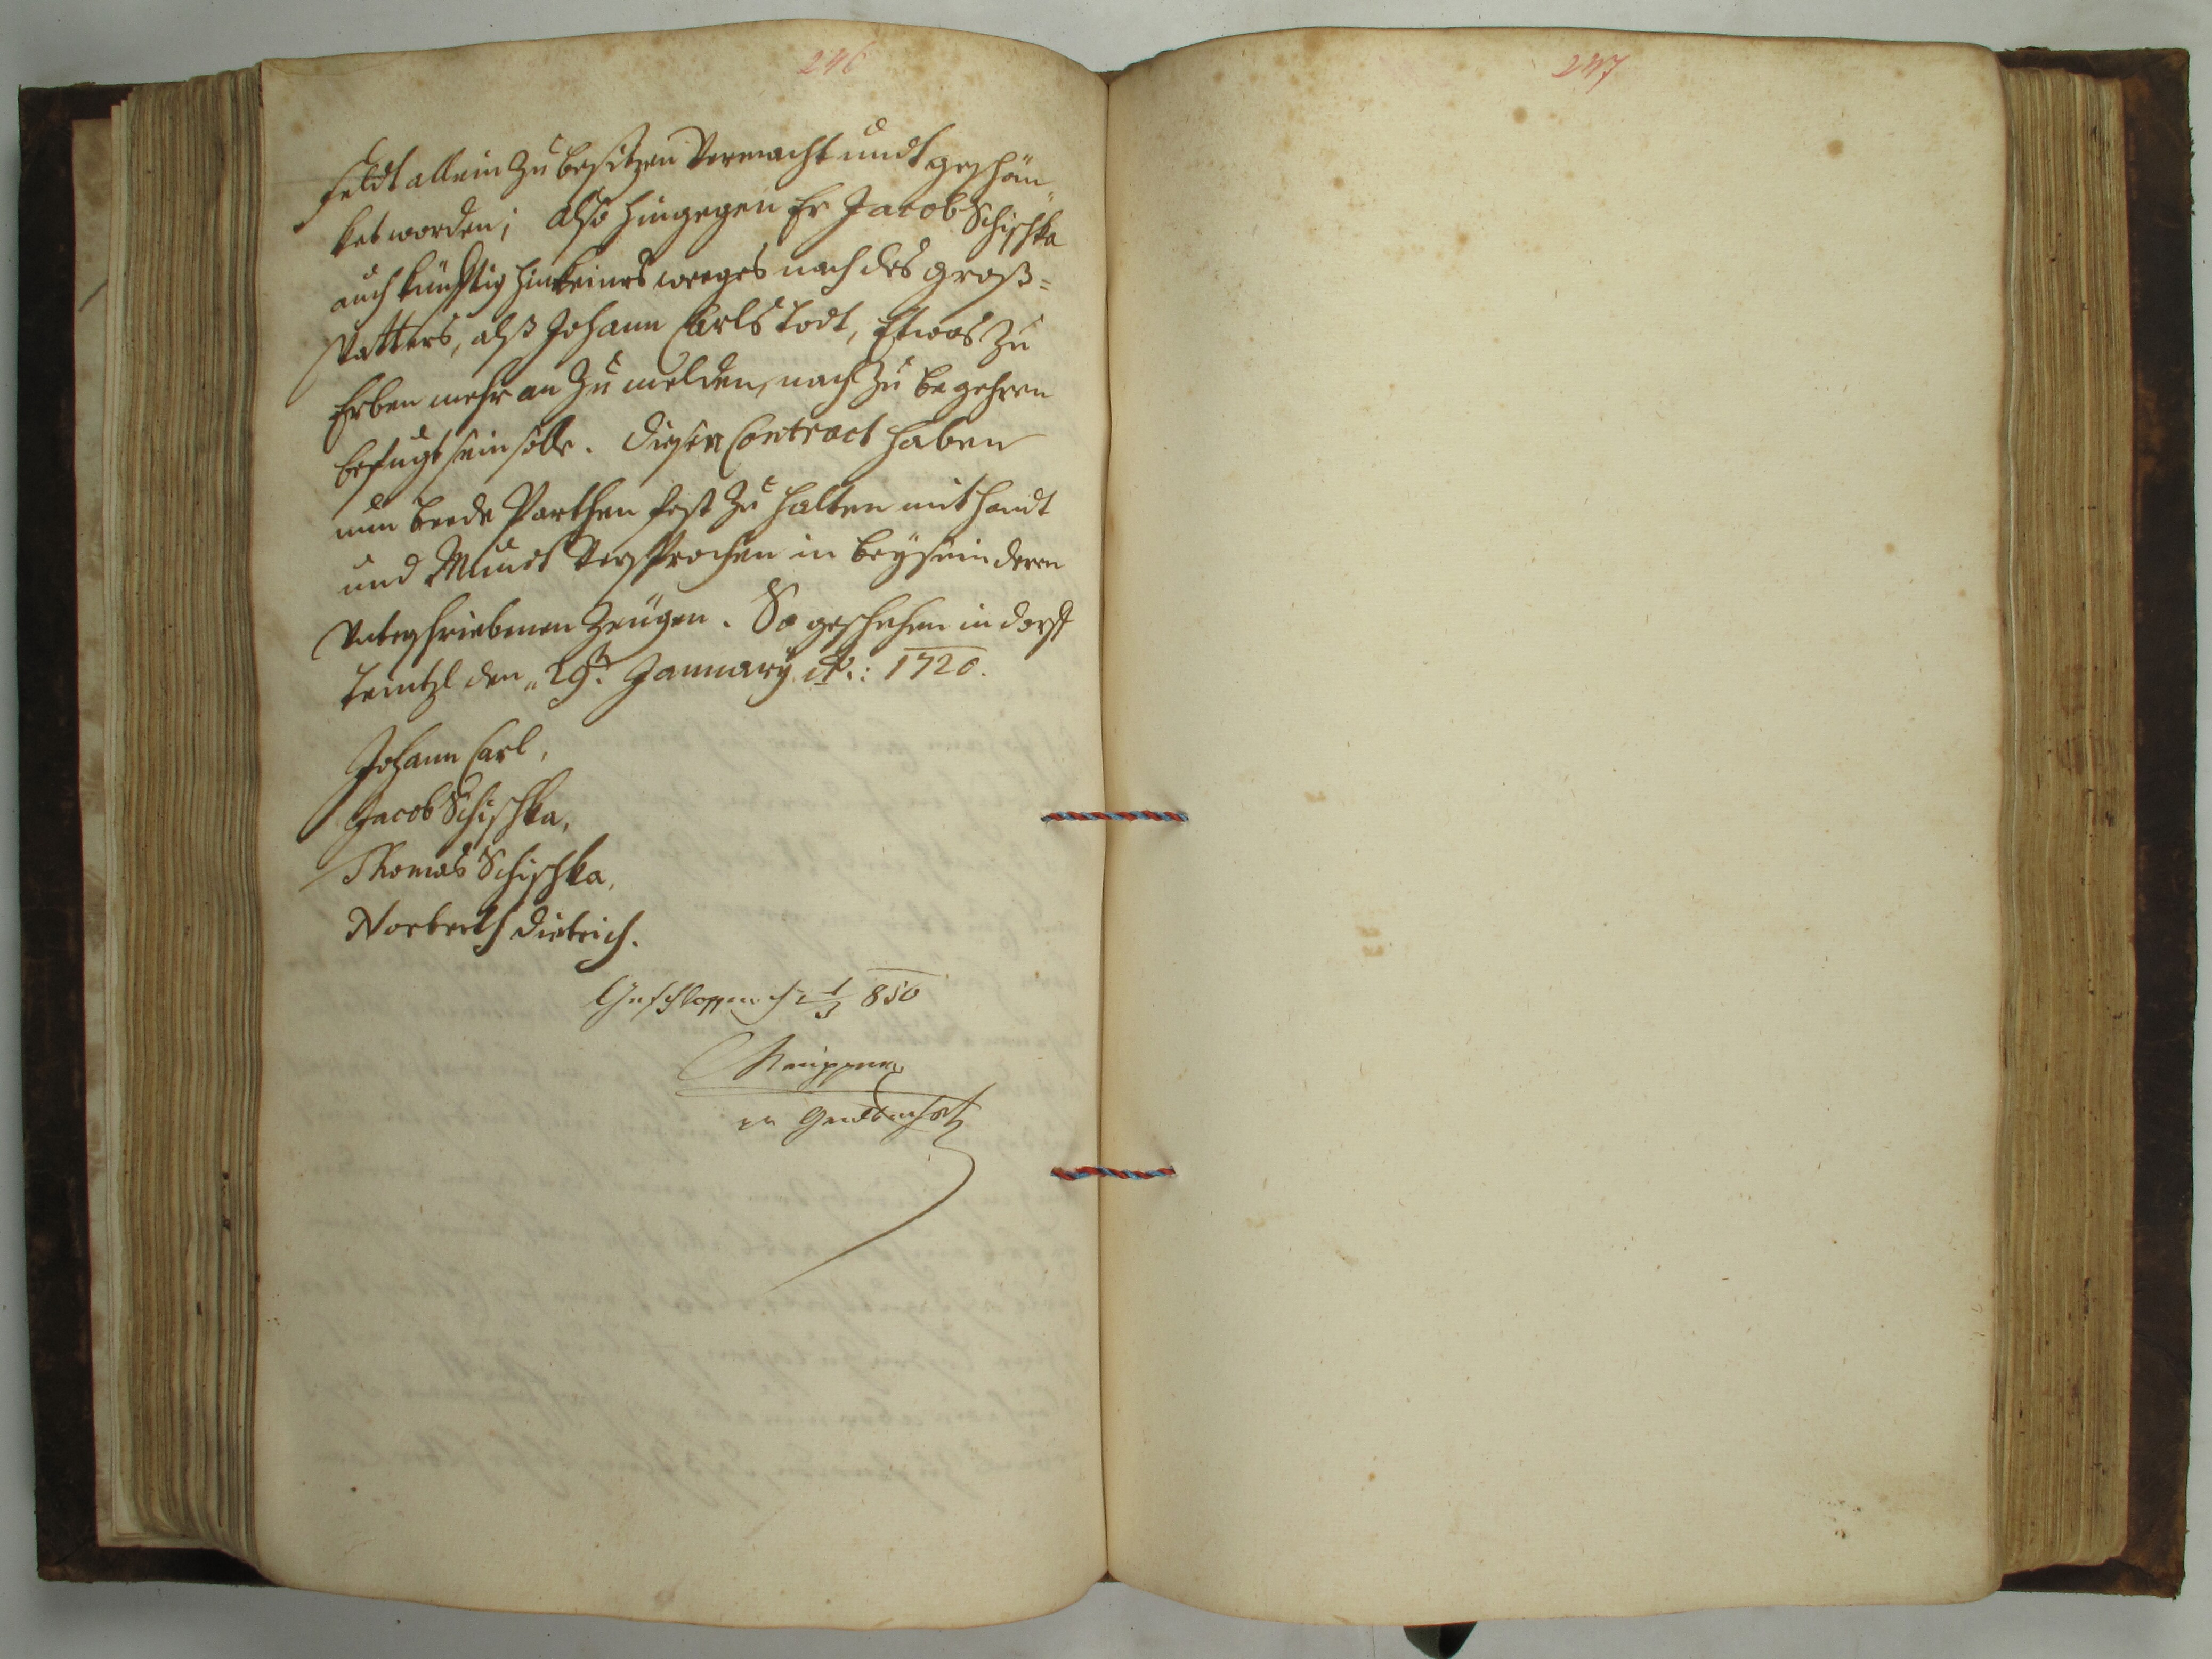 246
feldt allein zu besitzen Vermacht undt geschän„
ket worden; also hingegen Er Jacob Schischka
auch künfftig hin keines weeges nach des groß=
Vatters, alß Johann Carls todt, Etwas zu
Erben mehr an zu melden, noch zu begehren
befugt sein solle. Diesen Contract haben
nun beede Parthen fest zu halten mit handt
und Mundt Versprochen in beysein deren
Unterschriebenen Zeugen. So geschehen in dorff
den „29t. January Ao: 1720.
Johann Carl,
Jacob Schischka,
Thomas Schischka,
Norberth Dietrich.
Geschlossen 850
247